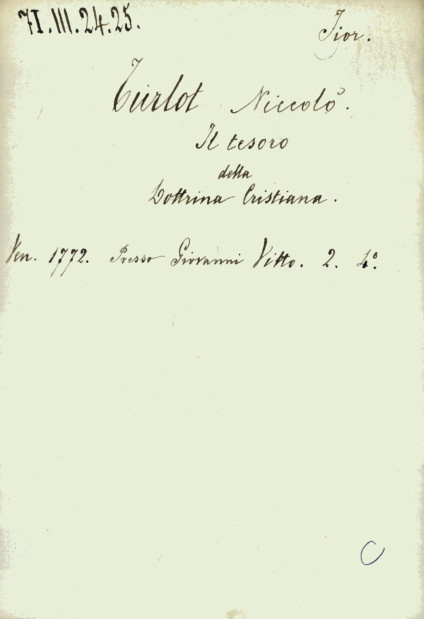 71.III.24.25.
Fior.
Turlot Niccolò.
Il tesoro
della
Dottrina Cristiana.
Ven. 1772. Presso Giovanni Vitto. 2. 4°.
C